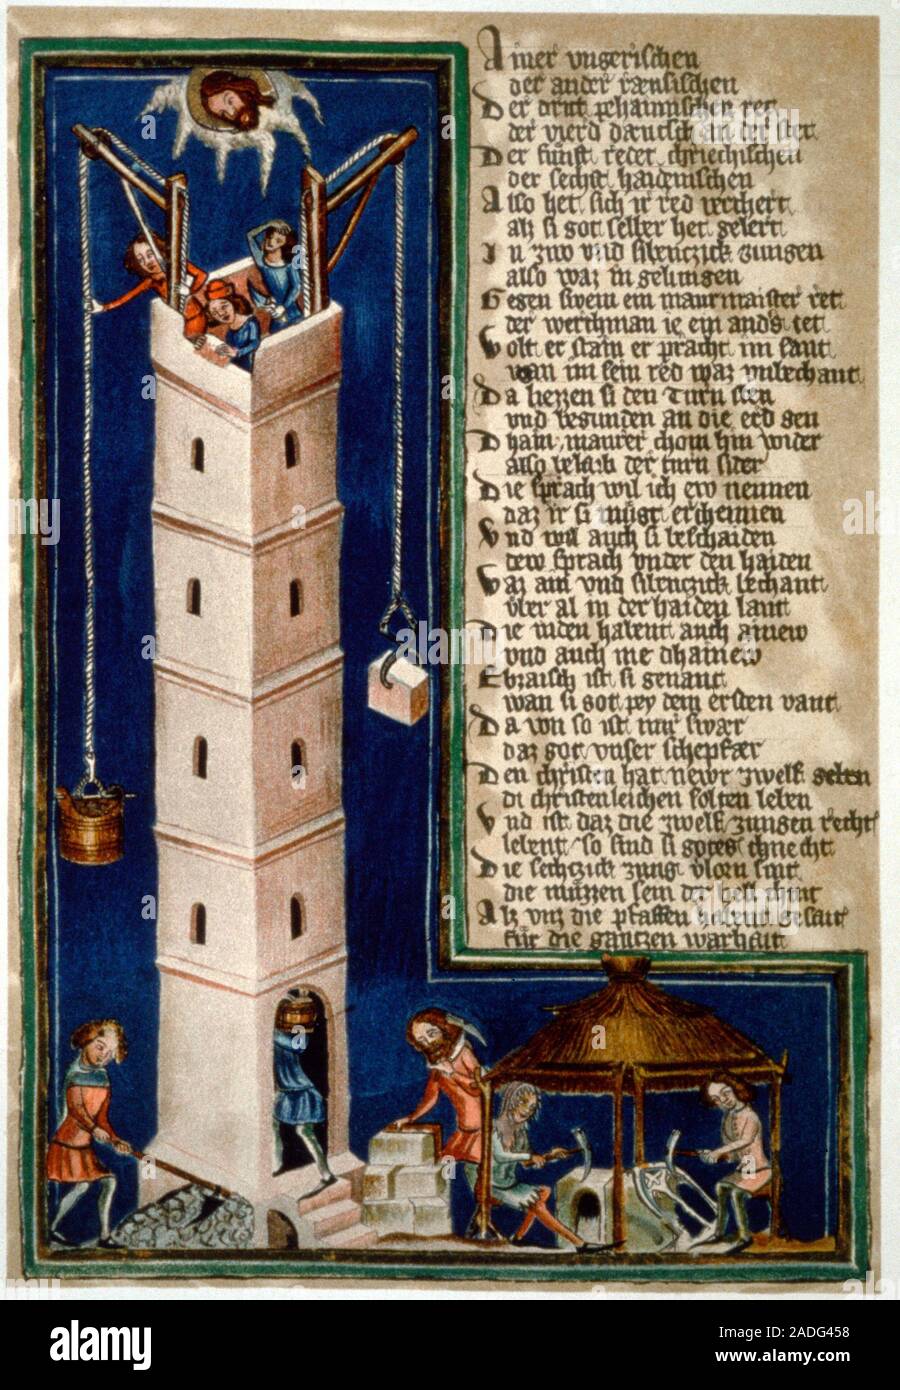 Ainer vngerischen
der ander rænsischen
Der drit pehaimischen ret
der vierd daeutsch an der stet
Der fumft redet chriechischen
der sechst haidenischen
Also het sich ir red verchert
als si got selber het gelert
In zwo vnd sibenczick zungen
also waz in gelungen
Gegen swem ein maurmaister ret
der werchman ie ein anders tet
Wolt er stain er pracht im sant
wan im sein red waz vnbechant
Da liezzen si den turn sten
vnd begunden an die erd gen
Dhain maurer chom hin wider
also belaib der turn sider
Die sprach wil ich ew nennen
daz ir si mügt erchennen
Vnd wil auch si beschaiden
dew sprach vnder den haiden
Waz ain vnd sibenczick bechant
vber al in der haiden lant
Die iuden habent auch ainew
vnd auch nie dhainew
Ebraisch ist si genant
wan si got pey dem ersten vant
Da von so ist mir swær
daz got vnser schepfær
Den christen hat newr zwelf geben
di christenleichen solten leben
Vnd ist daz die zwelf zungen recht
lebent so sind si gotes chnecht
Die sechczick zung vloren sint
die müzzen sein der hell chint
Alz vns die pfaffen habent gesait
für die gantzen warhait
alamy
Image ID: 2ADG458
www.alamy.com